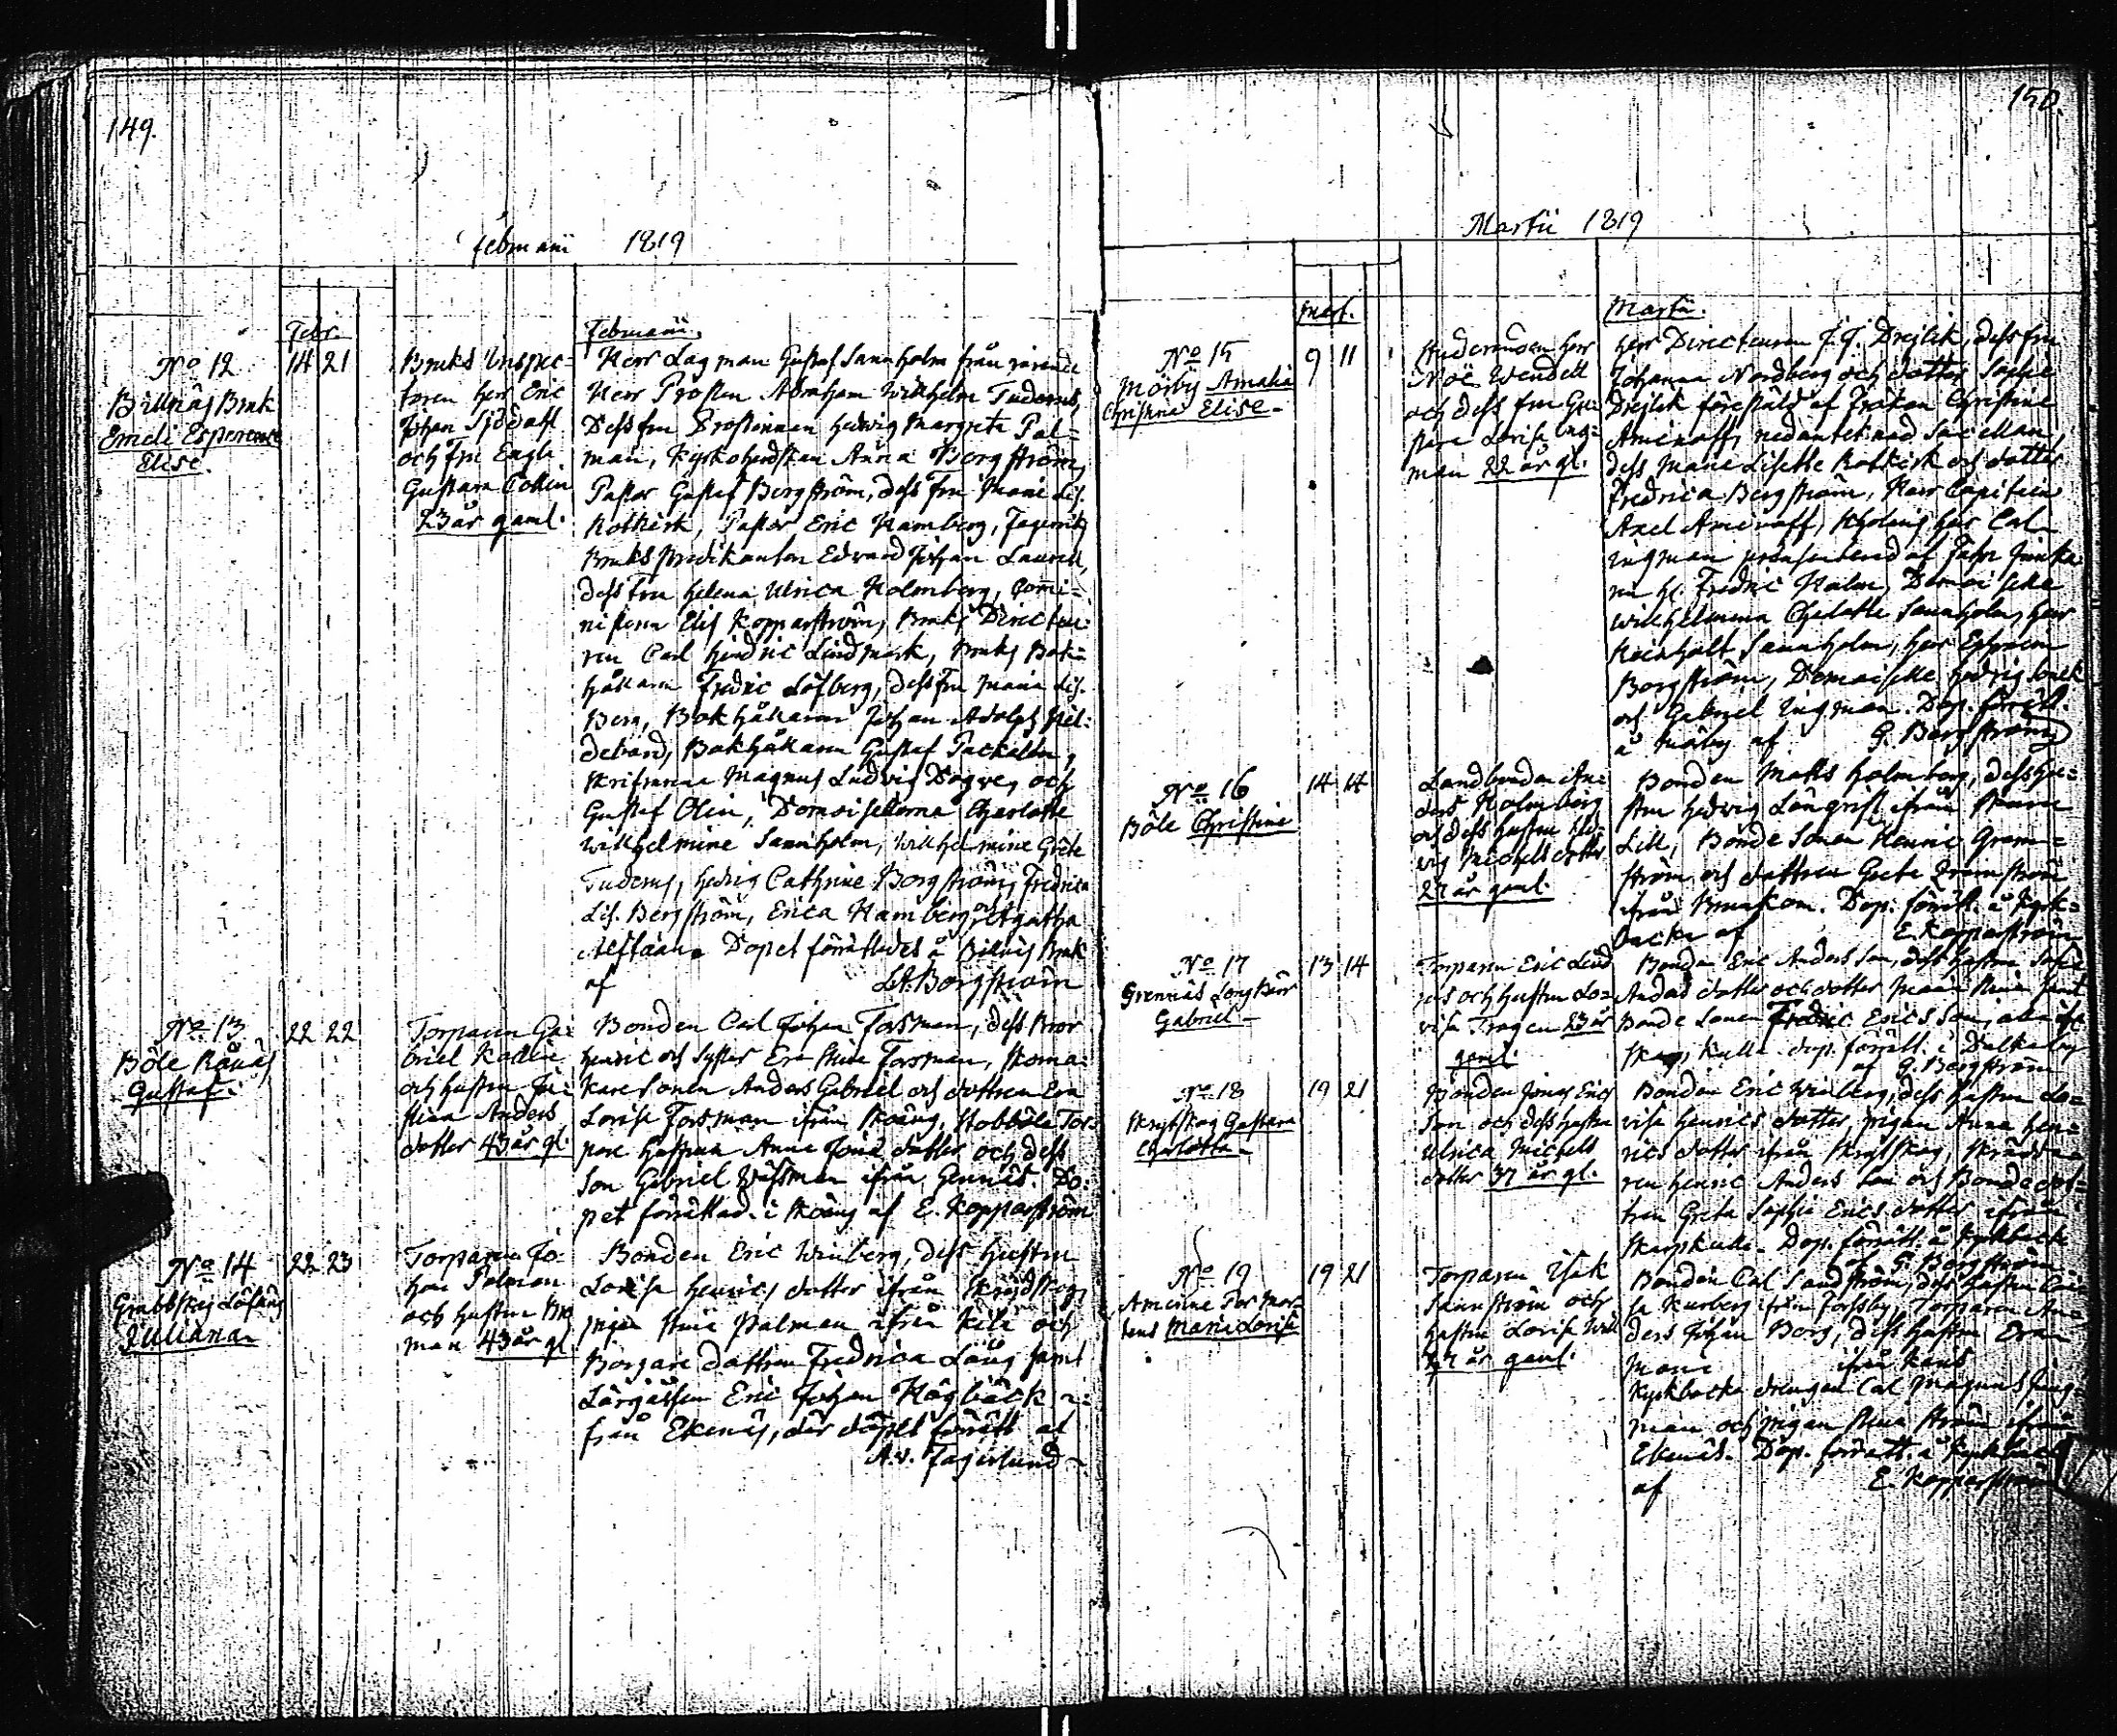 149.
Februarii 1819
Febr.
Februarii.
No 12
14 21
Billnäs Bruk
Emeli Esperence
Elise.
Bruks Inspec-
toren Herr Eric
Johan Sjödahl
och Fru Engla
Gustava Collin
23 år gaml.
Herr Lagman Gustaf Sannholm från
Herr Prosten Abraham Wilhelm Tuderus,
Dess fru Prostinnan Hedvig Margreta Pal-
man, Kyrkoherdskan Anna Borgström,
Pastor Gustaf Bergström, dess Fru Maria Lis.
Rotkirk, Pastor Eric Hamberg, Fagerviks
Bruks Predikanten Edvard Johan Laurell,
dess Fru Helena Ulrica Holmberg, Comi-
nistern Elis Kopparström, Bruks Directeu-
ren Carl Hindric Lindmark, Bruks Bok-
hållaren Fredric Löfberg, dess Fru Maria Lis.
Berg, Bokhållaren Johan Adolph Hil-
debrand, Bokhållaren Gustaf Packalén,
Skrifvarena Magnus Ludvig Dogve, och
Gustaf Olin, Demoisellerna Charlotte
Wilhelmine Sannholm, Wilhelmine Grete
Tuderus, Hedvig Cathrine Borgström, Fredrica
Lis. Bergström, Erica Hamberg och Agatha
Dopet förrättades å Billnäs Bruk
af Borgström
No 13
22 22
Böle Rånäs
Gustaf.
Torparen Ga-
briel Kollin
och hustru Ju-
stina Anders
dotter 43 år gl.
Bonden Carl Johan Forsman, dess Bror
Henric och Syster Eva Stina Forsman, Skoma-
kare Sonen Anders Gabriel och dottren Eva
Lovisa Forsman ifrån Skoäng, Stobböle Tor-
pare Hustrun Anna Johans dotter och dess
Son Gabriel Wassman ifrån Gennäs. Do-
pet förrättad. i Skoäng af E. Kopparström
No 14
22 23
Grabbskog Löfäng
Juliana
Torparen Jo-
han Palman
och hustru
man 43 år gl
Bonden Eric Winberg, dess hustru
Lovisa Henrics dotter ifrån Skrystskog,
pigan Stina Palman ifrån Kila och
Borgare dottren Fredrica Lång samt
Lärgossen Eric Johan Högbäck i-
från Ekenäs, där döpelt förrätt af
A. v. Fagerlund
150.
Martii 1819
Mart.
Martii.
No 15
9 11
Mörby Amalia
Christina Elise
Studeranden Herr
Noë Wendell
och dess fru Gu-
stava Lovisa Ing-
man 22 år gl.
Herr Directeuren J. J. Drejlik, dess fru
Johanna Nordberg och dotter Sophie
Drejlik förestäld af Fröken Christine
Aminoff,
dess Maria Lisette Rotkirk och dotter
Fredrica Bergström, Herr Capitein
Axel Aminoff, Herr Carl
Ingman
Fredric Holm, Demoiselle
Wilhelmina Charlotte Sannholm, Herr
Reinholt Sannholm, Herr Ephraim
Borgström, Demoiselle Hedvig
och Gabriel Ingman. Dop. förrätt.
å Mörby af G. Bergström
No 16
14 14
Böle Christina
Landbonden An-
ders Holmberg
och dess hustru Hed-
vig Michels dotter
27 år gaml.
Bonden Matts Holmberg, dess hu-
stru Hedvig Långqvist ifrån
Lill, Bonde Sonen Henric Grön-
ström och dottren Greta Grönström
ifrån Bruskom. Dop. förrätt. å Kyrk-
backa af E. Kopparström
No 17
13 14
Grennäs Långkärr
Gabriel
Torparen Eric Lind
ros och hustru Lo-
visa Trogen 23 år
gaml.
Bonden Eric Anders Son, dess hustru Sofia
Anders dotter och dotter Maria Stina samt
Bonde Sonen Fredric Erics Son, alla ifr
Skogkulla dop. förrätt. i Dalkarby
af G. Bergström
No 18
19 21
Skrystskog Gustava
Charlotta
Bonden Jonas Erics
Son och dess hustru
Ulrica Michels
dotter 37 år gl.
Bonden Eric Winberg, dess hustru Lo-
visa Henrics dotter, pigan Anna Hen-
rics dotter ifrån Skrystskog, Skrädda-
ren Henric Anders Son och Bonde dot-
tren Greta Sophia Erics dotter ifrån
Skarpkulla. Dop. förrätt. å Kyrkbacka
af G. Bergström
No 19
19 21
Aminne Tor Mor-
tens Maria Lovisa
Torparen Isak
Sannström och
hustru Lovisa
27 år gaml.
Bonden Carl Sandström, dess hustru Lovi-
sa Kurberg ifrån Forssby, Torparen An-
ders Johan Borg, dess hustru
Maria ifrån Karis
Kyrkbacka drengen Carl Magnus Jung-
man och pigan Stina Ström ifrån
Ekenäs. Dop. förrätt. å Kyrkbacka
af E. Kopparström